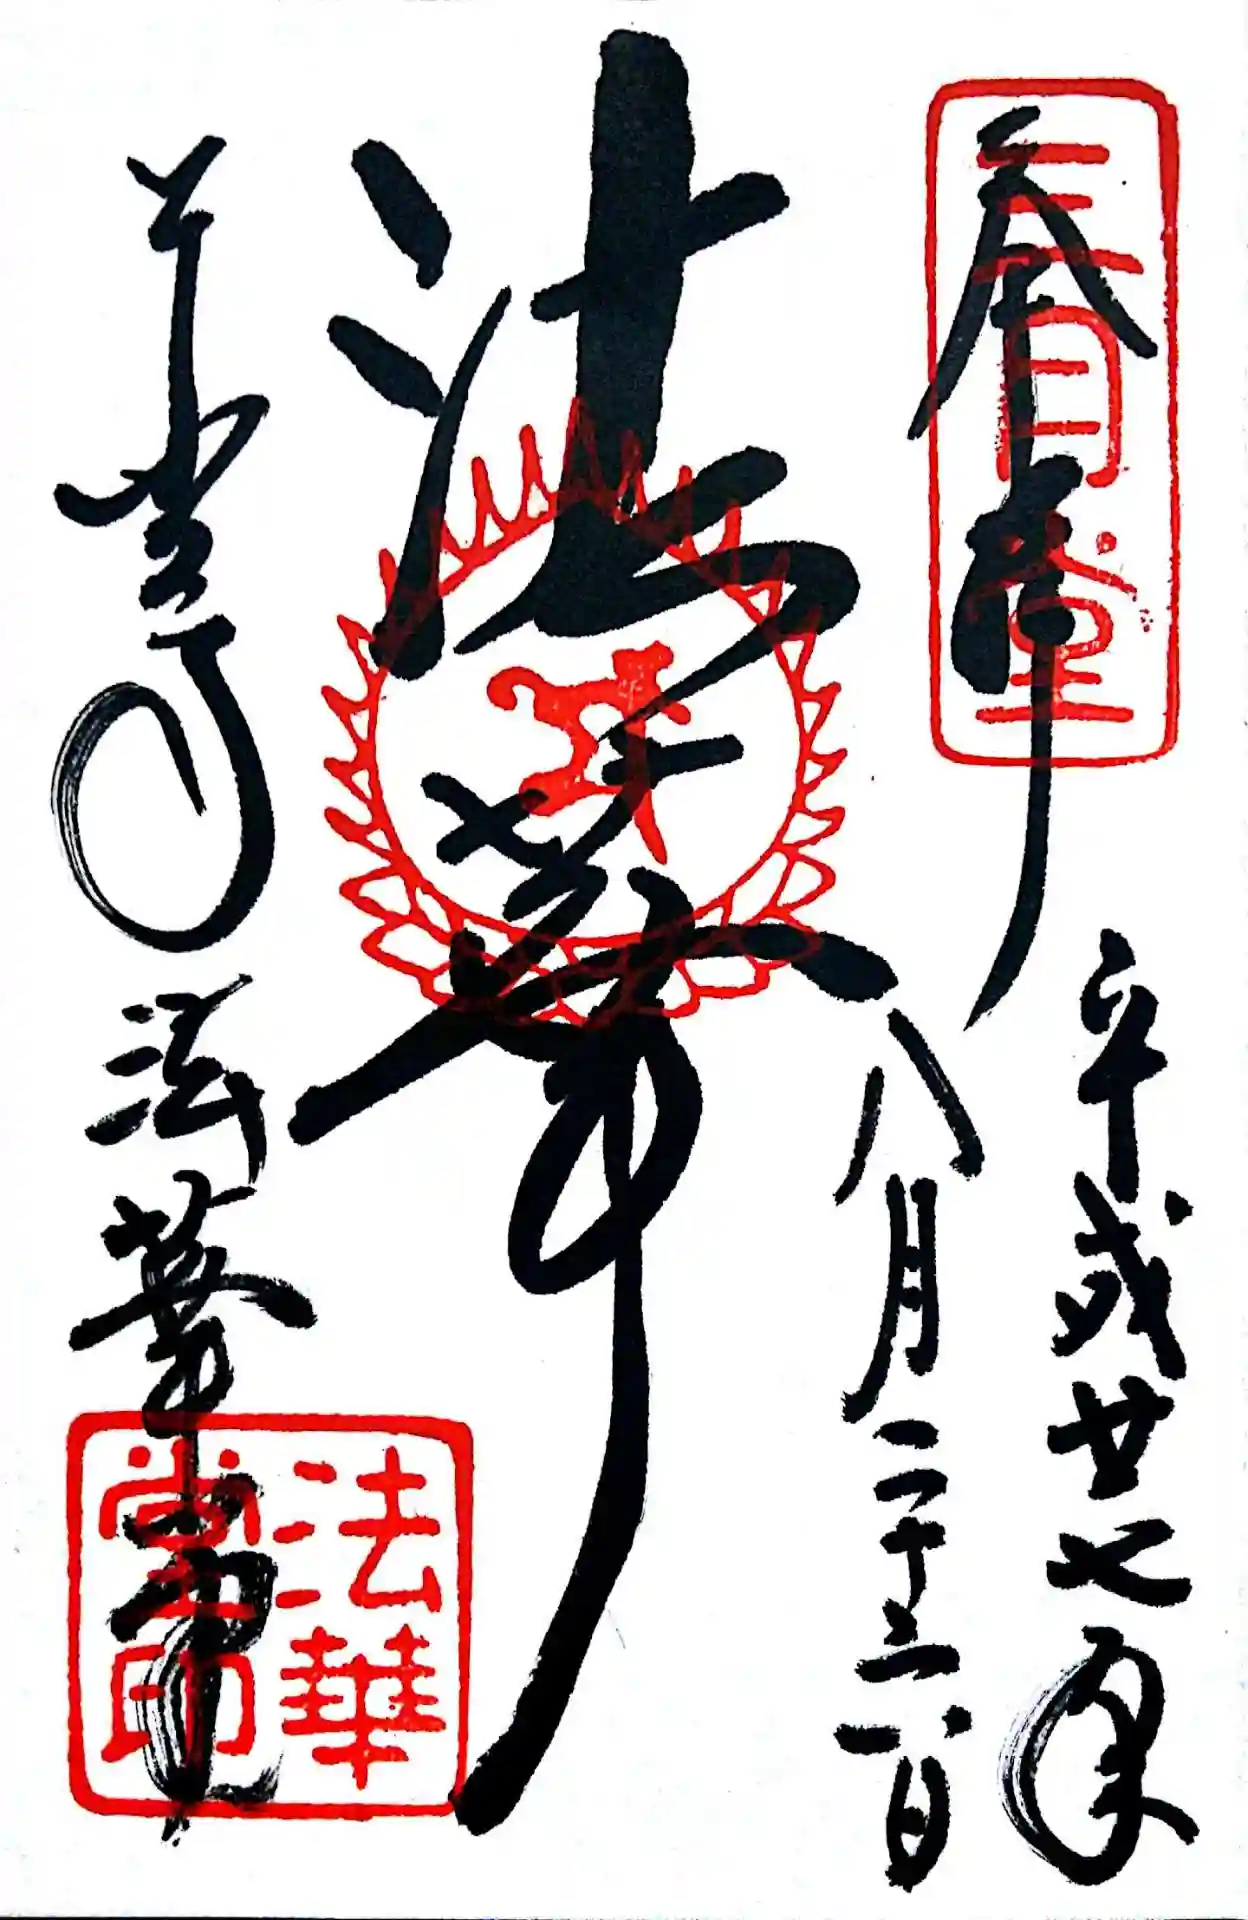 奉拝
三月堂
平成廿七年
八月二十三日
法華
東大寺法華堂
法華
堂印